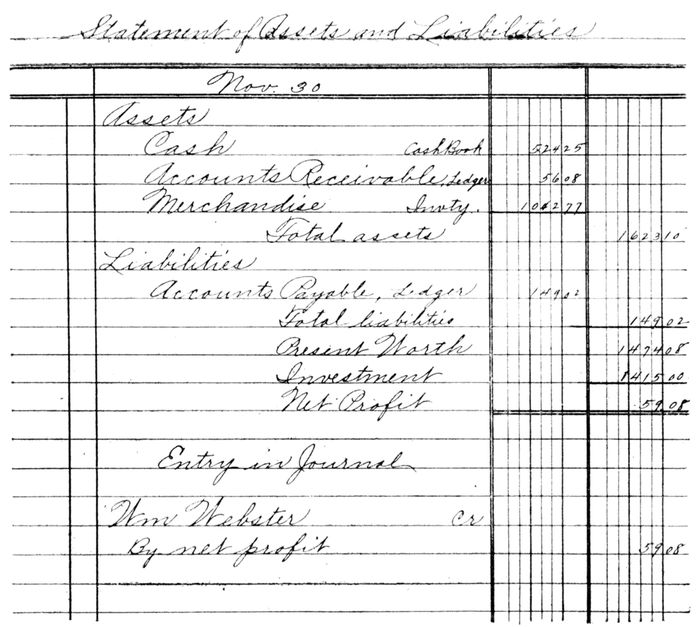 Statement of Assets and Liabilities
Nov. 30
Assets
Cash CashBook 52425
Accounts Receivable, Ledger 5608
Merchandise Invty. 104277
Total assets 162310
Liabilities
Accounts Payable, Ledger 149.02
Total liabilities 149.02
Present Worth 147408
Investment 1415.00
Net Profit 59.08
Entry in Journal
Wm Webster Cr
By net profit 59.08